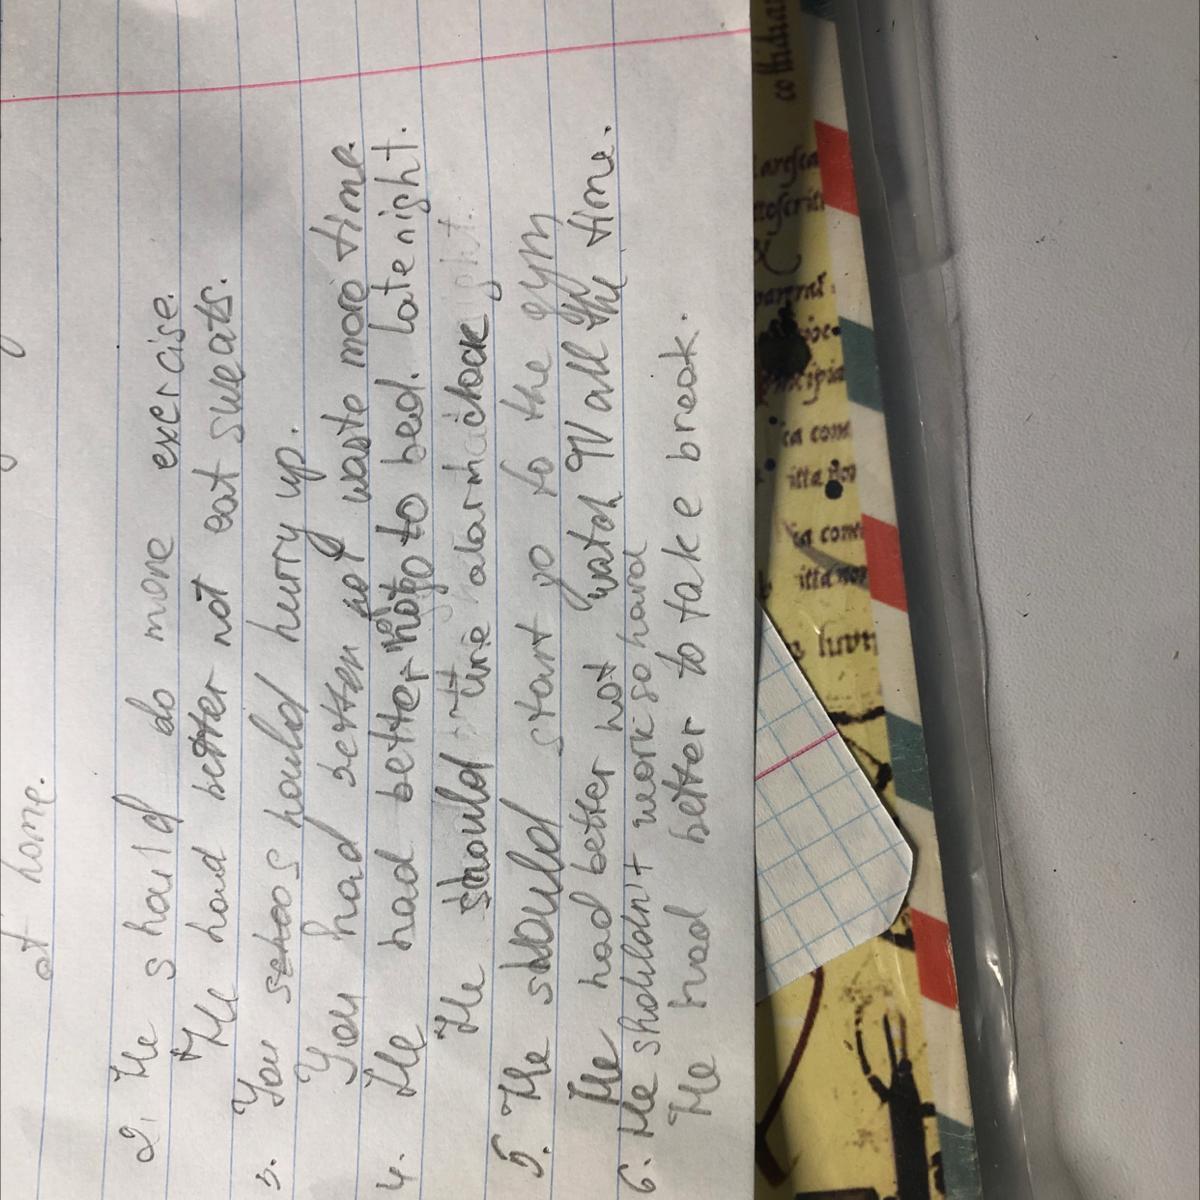 at home.
2. He should do more exercise.
He had better not eat sweats.
3. You should hurry up.
You had better not waste more time.
4. He had better not go to bed late night.
He should alarm clock
5. He should start go to the gym
He had better not watch TV all the time.
6. He shouldn't work so hard
He had better to take break.